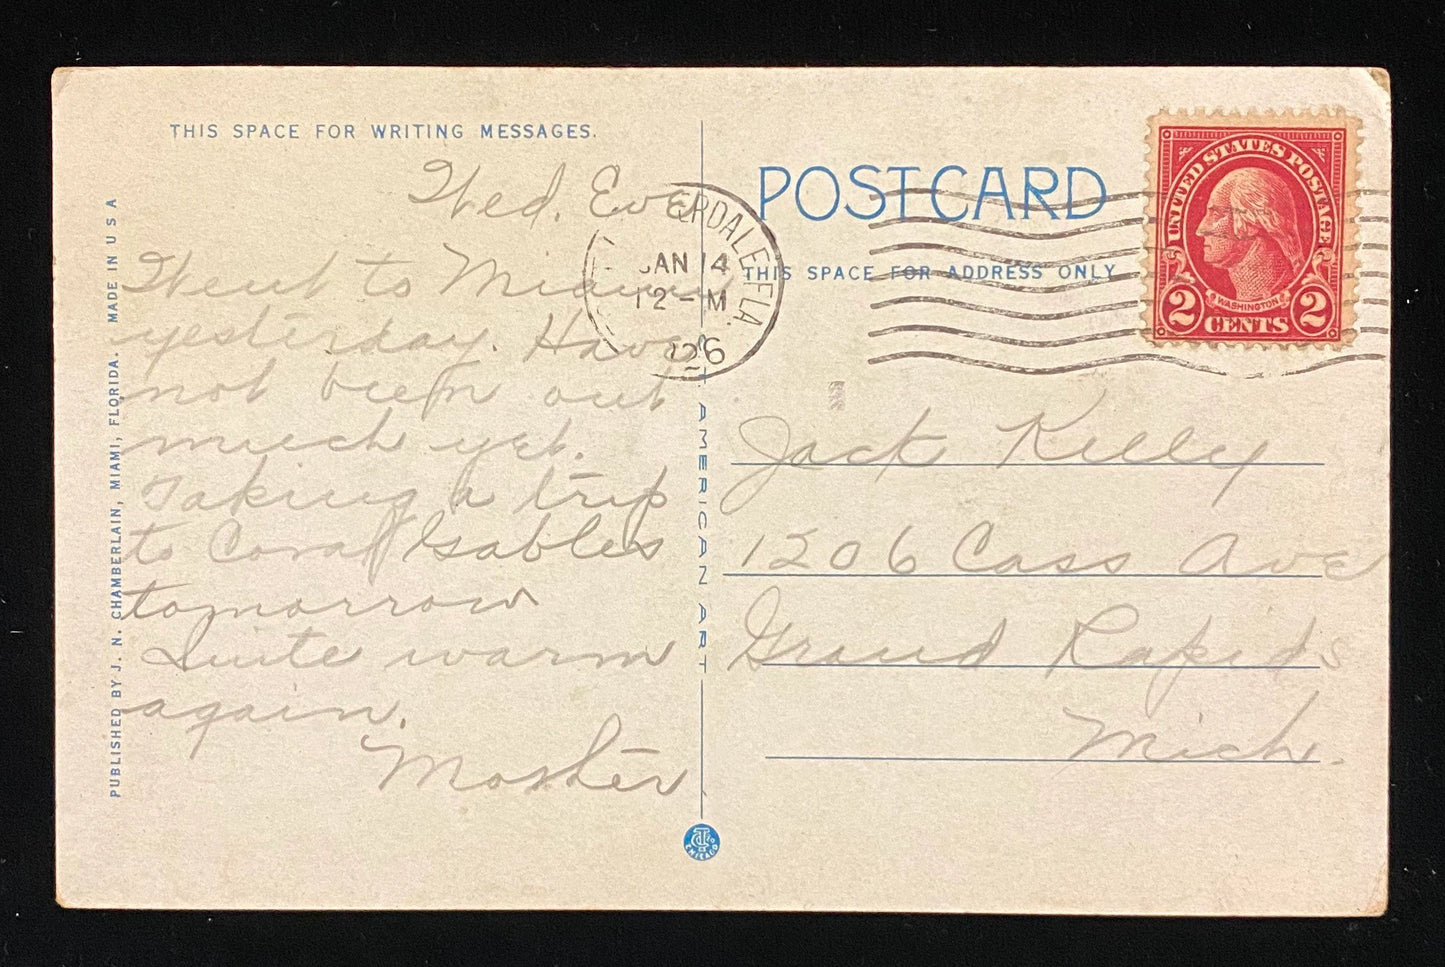 THIS SPACE FOR WRITING MESSAGES.
Wed. Eve
Went to Miami
yesterday. Have
not been out
much yet.
Taking a trip
to Coral Gables
tomorrow
Quite warm
again.
Mother
PUBLISHED BY J. N. CHAMBERLAIN, MIAMI, FLORIDA. MADE IN U S A
ERDALE, FLA.
JAN 14
12-M
26
AMERICAN ART
CHICAGO
POST CARD
THIS SPACE FOR ADDRESS ONLY
UNITED STATES POSTAGE
WASHINGTON
2 CENTS 2
Jack Kelly
1206 Cass Ave
Grand Rapids
Mich.